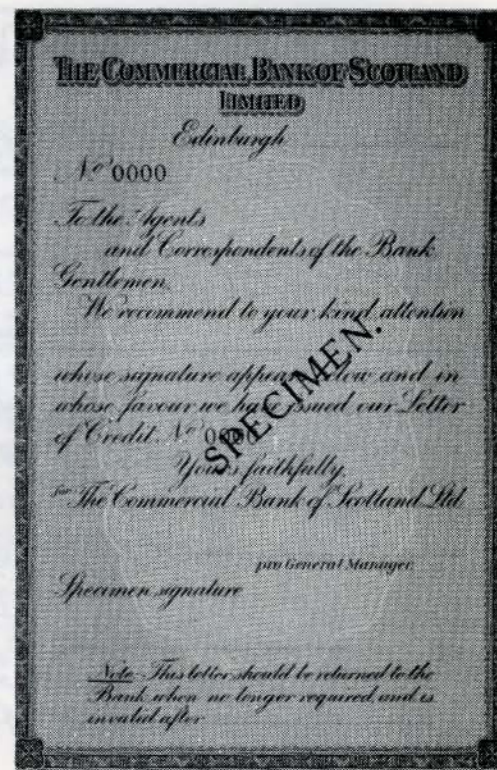 THE COMMERCIAL BANK OF SCOTLAND
LIMITED
Edinburgh
No. 0000
To the Agents
and Correspondents of the Bank
Gentlemen,
We recommend to your kind attention
whose signature appears below and in
whose favour we have issued our Letter
of Credit No. 0000
Yours faithfully,
for The Commercial Bank of Scotland Ltd.
pro General Manager.
Specimen signature
Note- This letter should be returned to the
Bank when no longer required and is
invalid after
SPECIMEN.